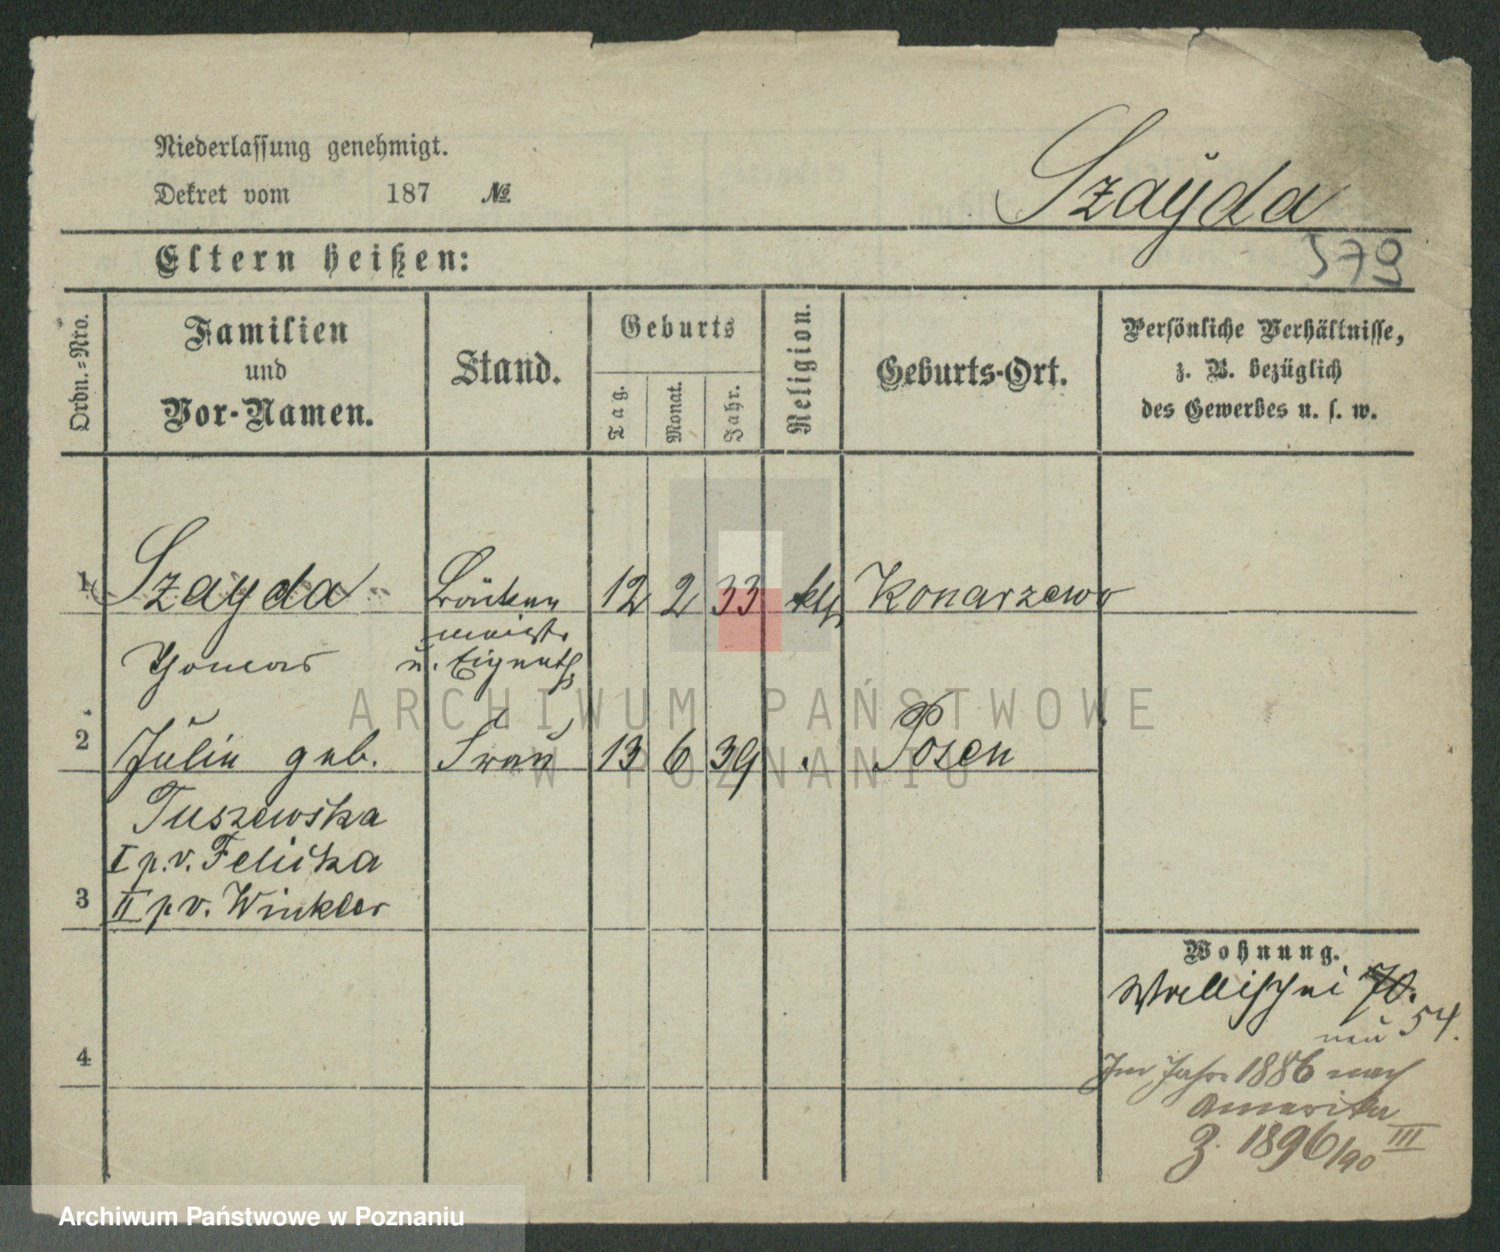 Niederlassung genehmigt.
Dekret vom 187 №
Szayda
579
Eltern heißen:
Ordn.-Nro.
Familien
und
Vor-Namen.
Stand.
Geburts
Tag.
Monat.
Jahr.
Religion.
Geburts-Ort.
Persönliche Verhältnisse,
z. B. bezüglich
des Gewerbes u. s. w.
1 Szayda 12 2 33 kth Konarzewo
meistr
Thomas u. Eigenth
2 Julie geb. Frau 13 6 39 Posen
Tuszewska
I p. v. Felicka
3 II p v. Winkler
4
Wohnung.
Wallischei 70.
neu 54.
Im Jahre 1886 nach
Amerika
Z. 1896/90 III
ARCHIWUM PAŃSTWOWE
W POZNANIU
Archiwum Państwowe w Poznaniu